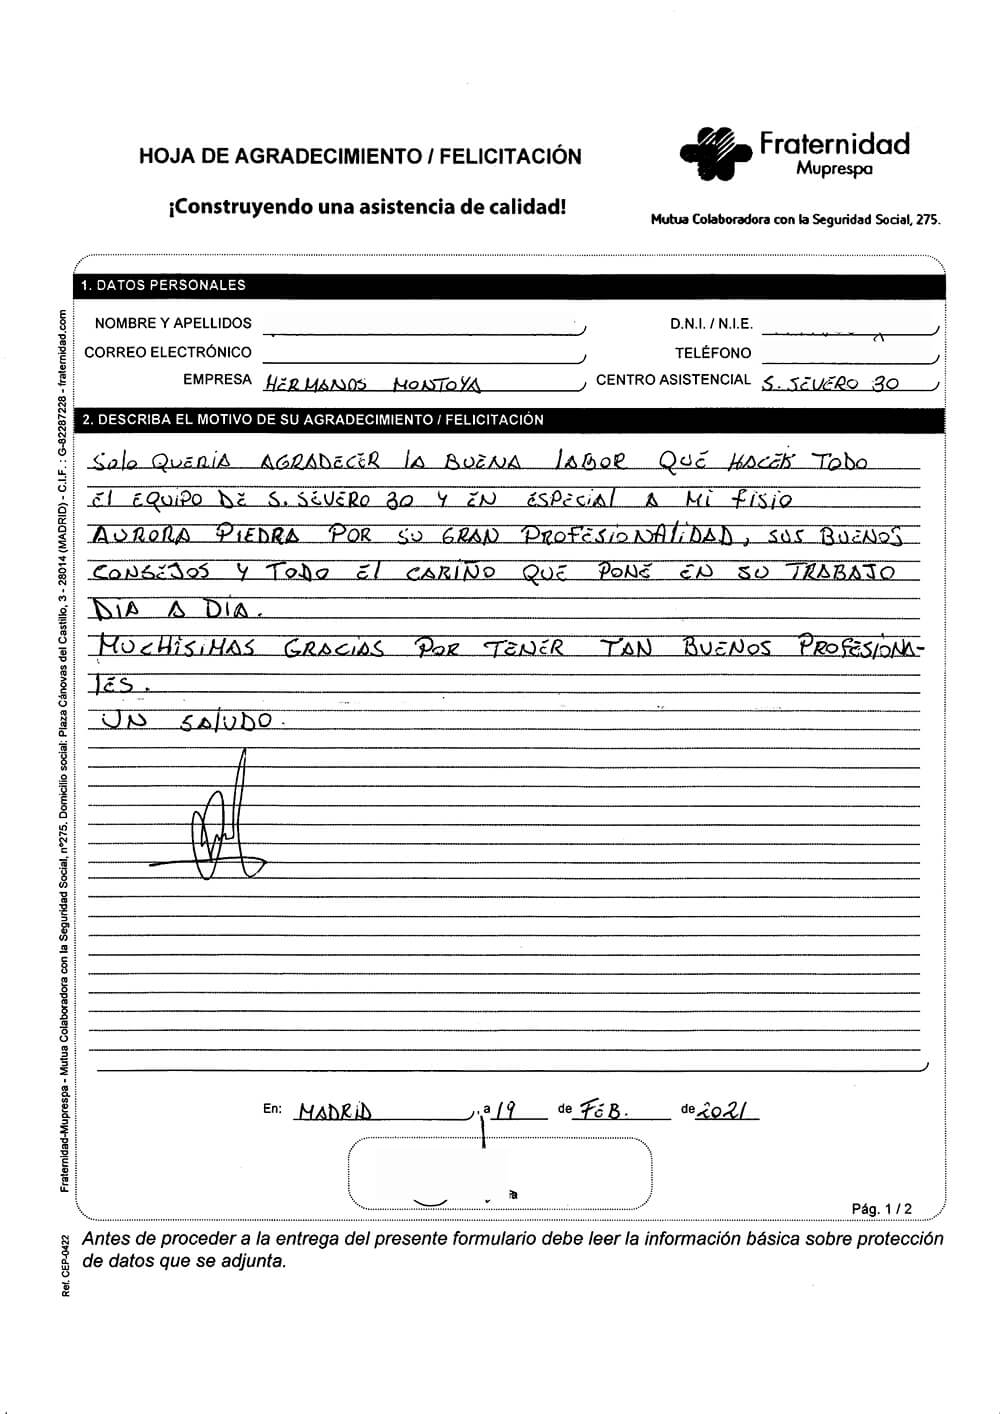 HOJA DE AGRADECIMIENTO / FELICITACIÓN
¡Construyendo una asistencia de calidad!
Fraternidad
Muprespa
Mutua Colaboradora con la Seguridad Social, 275.
1. DATOS PERSONALES
NOMBRE Y APELLIDOS
D.N.I. / N.I.E.
CORREO ELECTRÓNICO
TELÉFONO
EMPRESA HERMANOS MONTOYA
CENTRO ASISTENCIAL S. SEVERO 30
2. DESCRIBA EL MOTIVO DE SU AGRADECIMIENTO / FELICITACIÓN
Solo QUERIA AGRADECER LA BUENA LABOR QUÉ HACER TODO
El EQUIPO DE S. SEVERO 30 Y EN ESPECIAL A Mi fisio
AURORA PIEDRA POR SU GRAN PROFESIONALIDAD, SUS BUENOS
CONSEJOS Y TODO El CARIÑO QUE PONE EN SU TRABAJO
DIA A DÍA.
MUCHÍSIMAS GRACIAS POR TENER TAN BUENOS PROFESIONA-
LES.
UN SALUDO.
En: MADRID, a 19 de FEB. de 2021
Pág. 1 / 2
Antes de proceder a la entrega del presente formulario debe leer la información básica sobre protección
de datos que se adjunta.
Fraternidad-Muprespa - Mutua Colaboradora con la Seguridad Social, nº275. Domicilio social: Plaza Cánovas del Castillo, 3 - 28014 (MADRID) - C.I.F. : G-82287228 - fraternidad.com
Ref. CEP-0422